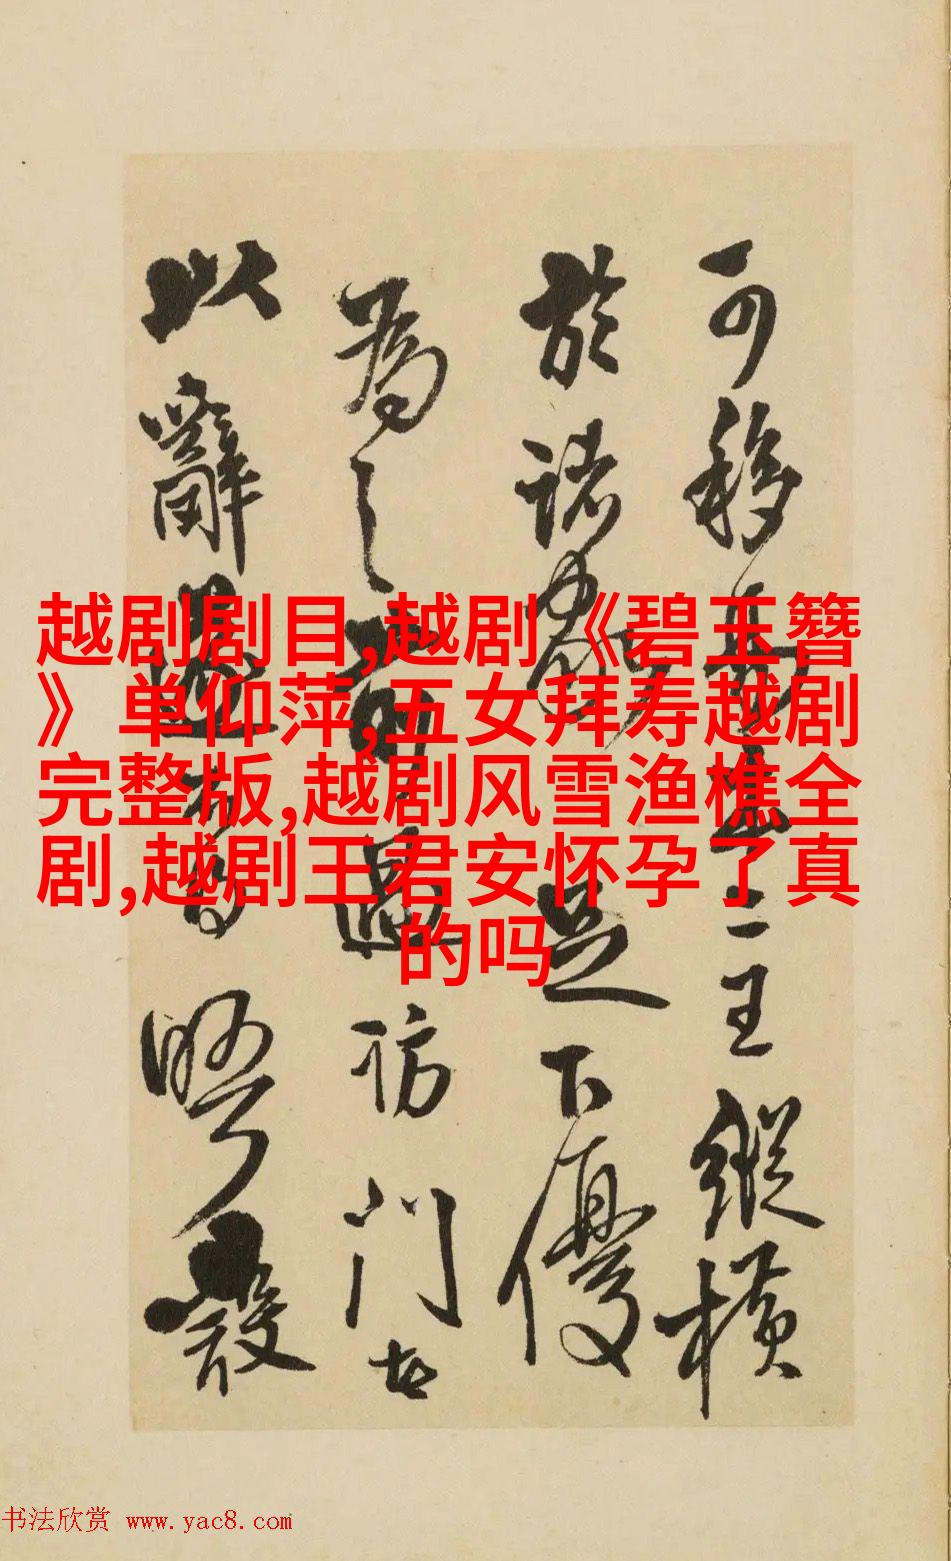 越剧剧目,越剧《碧玉簪
》单仰萍,五女拜寿越剧
完整版,越剧风雪渔樵全
剧,越剧王君安怀孕了真
的吗
可移二王縱橫
於諸足下優
為之前過訪門
以辭晤設
书法欣赏 www.yac8.com